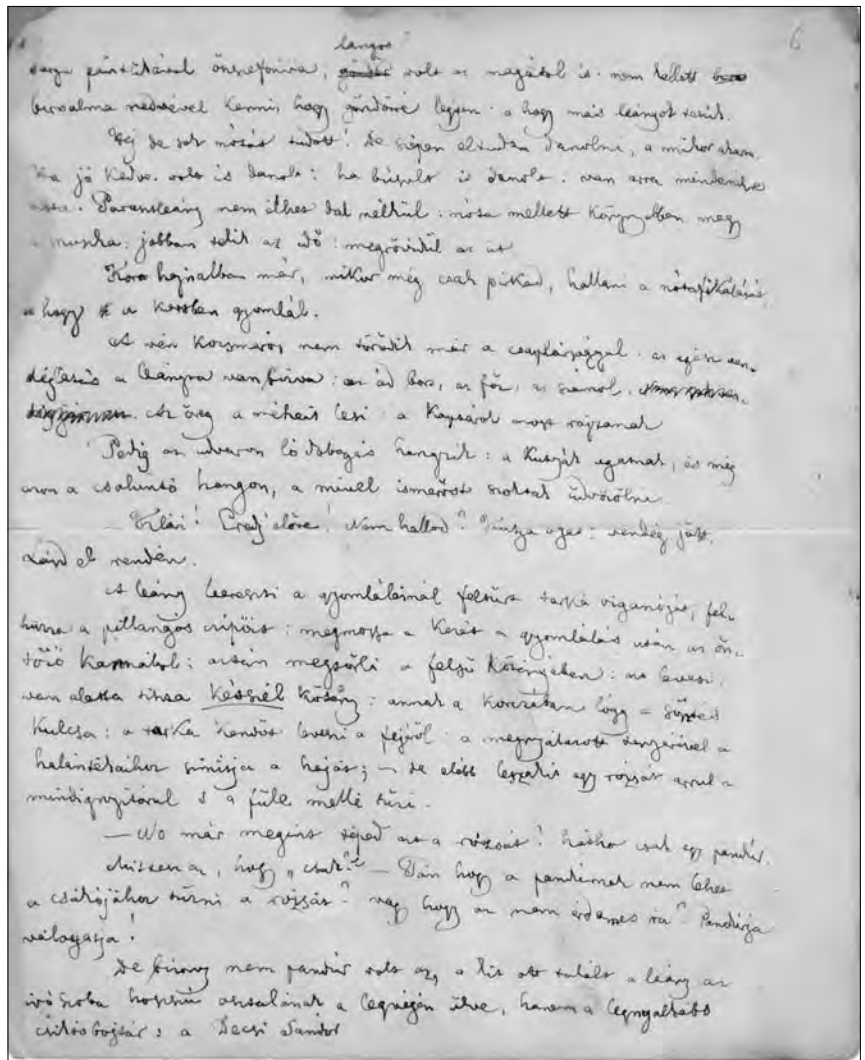 sárga pántlikával összefonva; langos göndör volt az magától is: nem kellett
birsalma nedvével kenni hogy göndörré legyen: a hogy más leányok teszik.
Hej de sok nótát tudott! De szépen el tudta danolni, a mikor akarta.
Ha jó kedve volt is danolt: ha búsult is danolt: van arra mindenikre
nóta. Parasztleány nem élhet dal nélkül: nóta mellett könnyebben megy
a munka: jobban telik az idő: megrövidül az út
Kora hajnalban már, mikor még csak pitkad, hallani a nótafikálását
a hogy a kertben gyomlál.
A vén kocsmáros nem törődik már a csaplársággal: az egész ven-
déglátás a leányra van bízva: az ád bort, az főz, az számol.
Az öreg a méheit lesi: a most rajzanak
Pedig az udvaron lódobogás hangzik: a kutyák ugatnak, és még
azon a hangon, a mivel ismerőst szoktak üdvözölni
— Klári! Eredj előre! Nem hallod? ugat: vendég jött.
Lásd el rendén.
A leány leereszti a gyomlálásnál feltűrt tarka viganóját, fel-
húzza a pillangós czipőit: megmossa a kezét a gyomlálás után az ön-
töző kannából: aztán megtörli a felső kötényében: azt leveti:
van alatta tiszta késszél kötény: annak a korczában lógg a söntés
kulcsa: a tarka kendőt leveszi a fejéről: a megnyálazott tenyerével a
halántékaihoz simitja a haját; — de előbb leszakít egy rózsát arrul a
mindignyitórul s a füle mellé tűzi.
— No már megint téped azt a rózsát? hátha csak egy pandúr.
Miszen az, hogy „csak"? — Tán hogy a pandúrnak nem lehet
a csákójához tűzni a rózsát? vagy hogy az nem érdemes rá? Pandúrja
válogatja!
De bizony nem pandúr volt az, a kit ott talált a leány az
ivószoba hosszú asztalának a legvégén ülve, hanem a legnyalkább
csikósbojtár: a Decsi Sándor
6